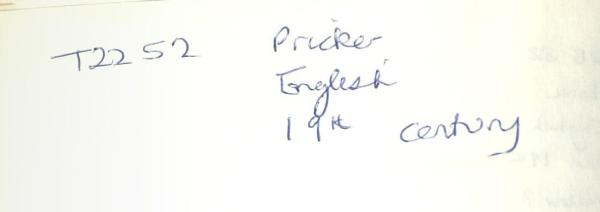 T2252 Pricker
English
19th century